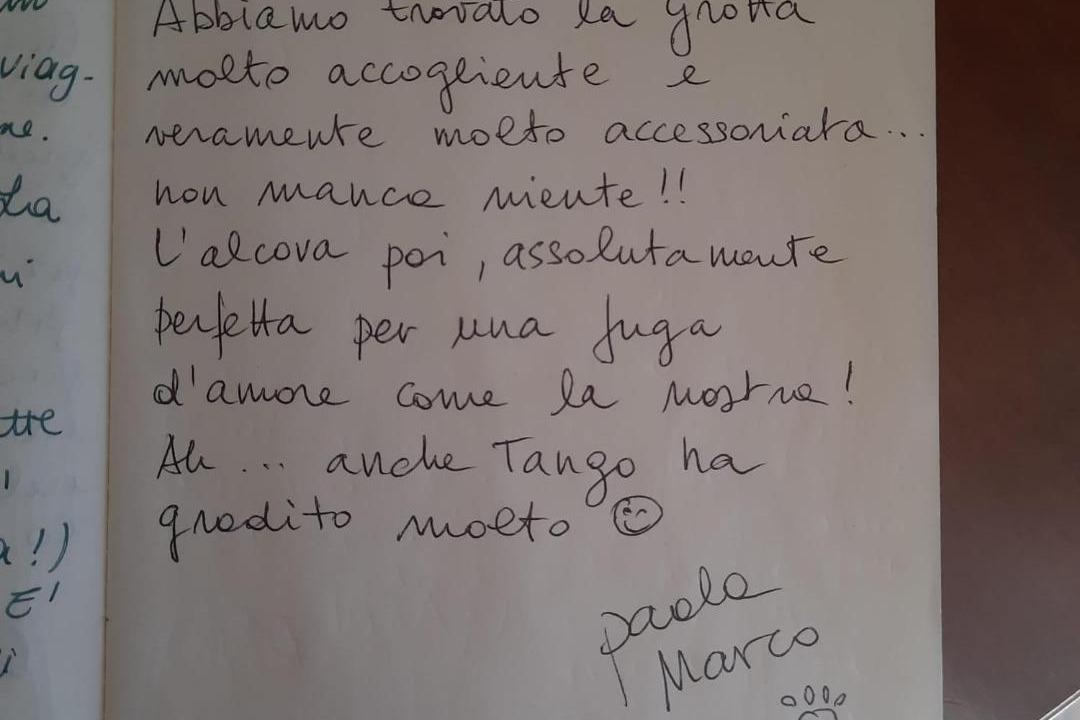 Abbiamo trovato la grotta
viag-
molto accogliente e
ne.
veramente molto accessoriata...
La
non manca niente!!
L'alcova poi, assolutamente
perfetta per una fuga
d'amore come la nostra!
tte
Ah... anche Tango ha
gradito molto
a!)
E'
Paola
Marco